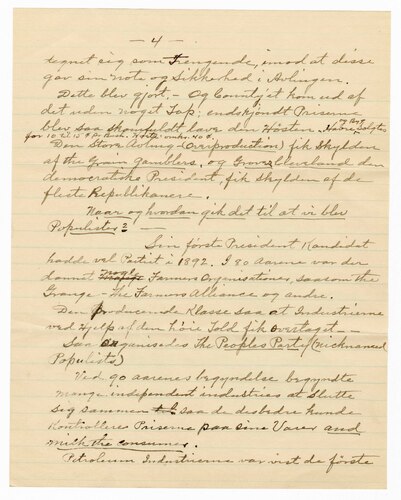 — 4 —
tegnet sig som Trengende, imod at disse
gav sin note og Sikkerhed i Avlingen.
Dette blev gjort; – Og Countyet kom ud af
det uden noget Tap; endskjøndt Priserne
blev saa skamfuldt lave den Høsten.
Havre Solgtes
for 10 c.
Den Store Avling (Overproduction) fik Skylden
af the Grain gamblers, og Grover Cleveland den
democratiske President, fik Skylden af de
fleste Republikanere.
Naar og hvordan gik det til at vi blev
Populister? –
Sin første President Kandidat
hadde vel Partiet i 1892. I 80 Aarene var der
dannet nogle Farmers Organisationer, saasom the
Grange – The Farmers Alliance og andre.
Den producerende Klasse saa at Industrierne
ved Hjelp af den høie Told fik Overtaget. – –
Saa organisedes the Peoples Party (nicknamed
Populists)
Ved 90 aarenes begyndelse begyndte
mange independent industries at Slutte
sig sammen saa de desbedre kunde
Kontrollere Priserne paa sine Varer and
milk the consumer.
Petroleum Industrierne var vist de første